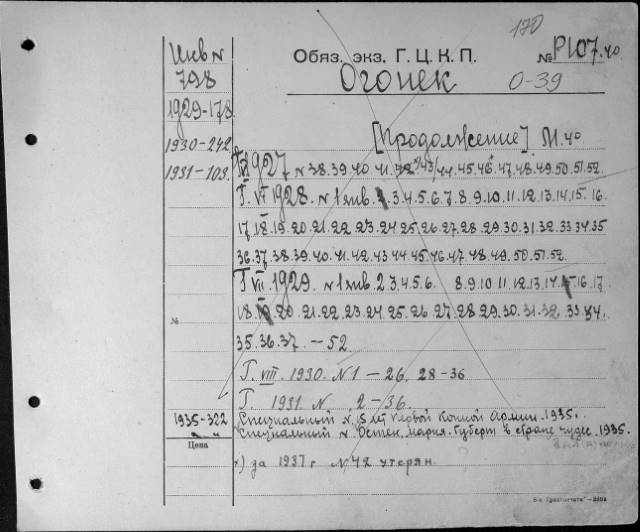 170
Инв №
798
Обяз. экз. Г. Ц. К. П.
№ Р107.40
Огонек
О-39
1929-178
[Продолжение] М.40
1930-242
1931-103.
1927 N 38.39.40 41.42 43/44.45.46 47.48.49.50.51.52.
Г. VI 1928. N 1 янв. 2.3.4.5.6.7.8.9.10.11.12.13.14.15.16.
17.18.19.20.21.22.23.24.25.26.27.28.29.30.31.32.33.34.35
36.37.38.39.40.41.42.43.44.45.46.47.48.49.50.51.52.
Г VII 1929. N 1 янв. 2 3.4.5.6. 8.9.10.11.12.13.14.15.16.17
18.19.20.21.22.23.24.25.26.27.28.29.30.31.32.33.34.
№
35.36.37. — 52
Г. VIII. 1930. N 1 — 26, 28-36
Г. 1931. N 2 — 36.
1935-322
Специальный N. 15 лет первой Конной Армии. 1935.
Специальный N. Остен, Мария. Губерт в стране чудес. 1935.
Цена
х) за 1937 г N 42 утерян.